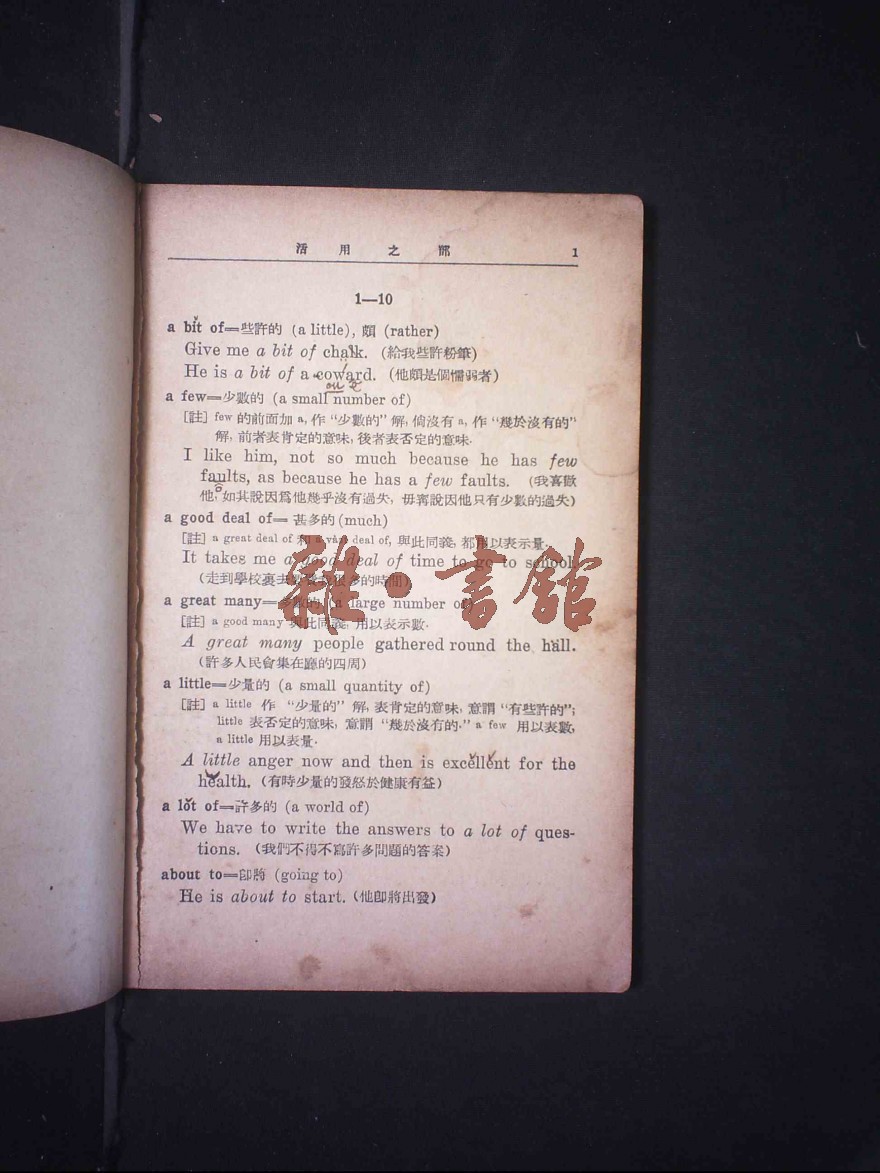 活用之部 1
1—10
a bit of=些許的 (a little), 頗 (rather)
Give me a bit of chalk. (給我些許粉筆)
He is a bit of a coward. (他頗是個懦弱者)
a few=少數的 (a small number of)
[註] few 的前面加 a, 作 “少數的” 解, 倘沒有 a, 作 “幾於沒有的”
解, 前者表肯定的意味, 後者表否定的意味.
I like him, not so much because he has few
faults, as because he has a few faults. (我喜歡
他, 如其說因爲他幾乎沒有過失, 毋寧說因他只有少數的過失)
a good deal of= 甚多的 (much)
[註] a great deal of 和 a vast deal of, 與此同義, 都用以表示量.
It takes me a good deal of time to go to school.
(走到學校裏去 很多的時間)
a great many=多數的 (a large number of)
[註] a good many 與此同義, 用以表示數.
A great many people gathered round the hall.
(許多人民會集在廳的四周)
a little=少量的 (a small quantity of)
[註] a little 作 “少量的” 解, 表肯定的意味, 意謂 “有些許的”;
little 表否定的意味, 意謂 “幾於沒有的.” a few 用以表數,
a little 用以表量.
A little anger now and then is excellent for the
health. (有時少量的發怒於健康有益)
a lot of=許多的 (a world of)
We have to write the answers to a lot of ques-
tions. (我們不得不寫許多問題的答案)
about to=卽將 (going to)
He is about to start. (他卽將出發)
雜·書館